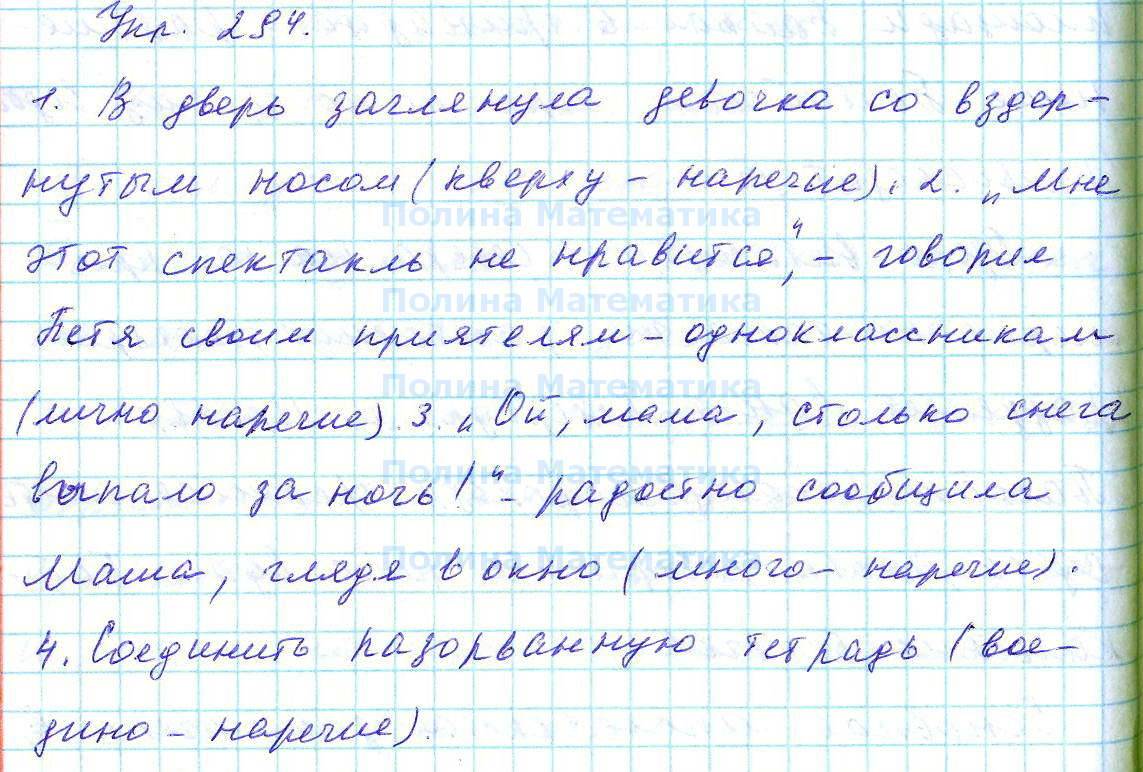 Упр. 294.
1. В дверь заглянула девочка со вздер-
нутым носом (кверху - наречие). 2. „Мне
Полина Математика
этот спектакль не нравится“, - говорил
Полина Математика
Петя своим приятелям - одноклассникам
Полина Математика
(лично наречие). 3. „Ой, мама, столько снега
Полина Математика
выпало за ночь!“ - радостно сообщила
Полина Математика
Маша, глядя в окно (много - наречие).
4. Соединить разорванную тетрадь (вое-
дино - наречие).